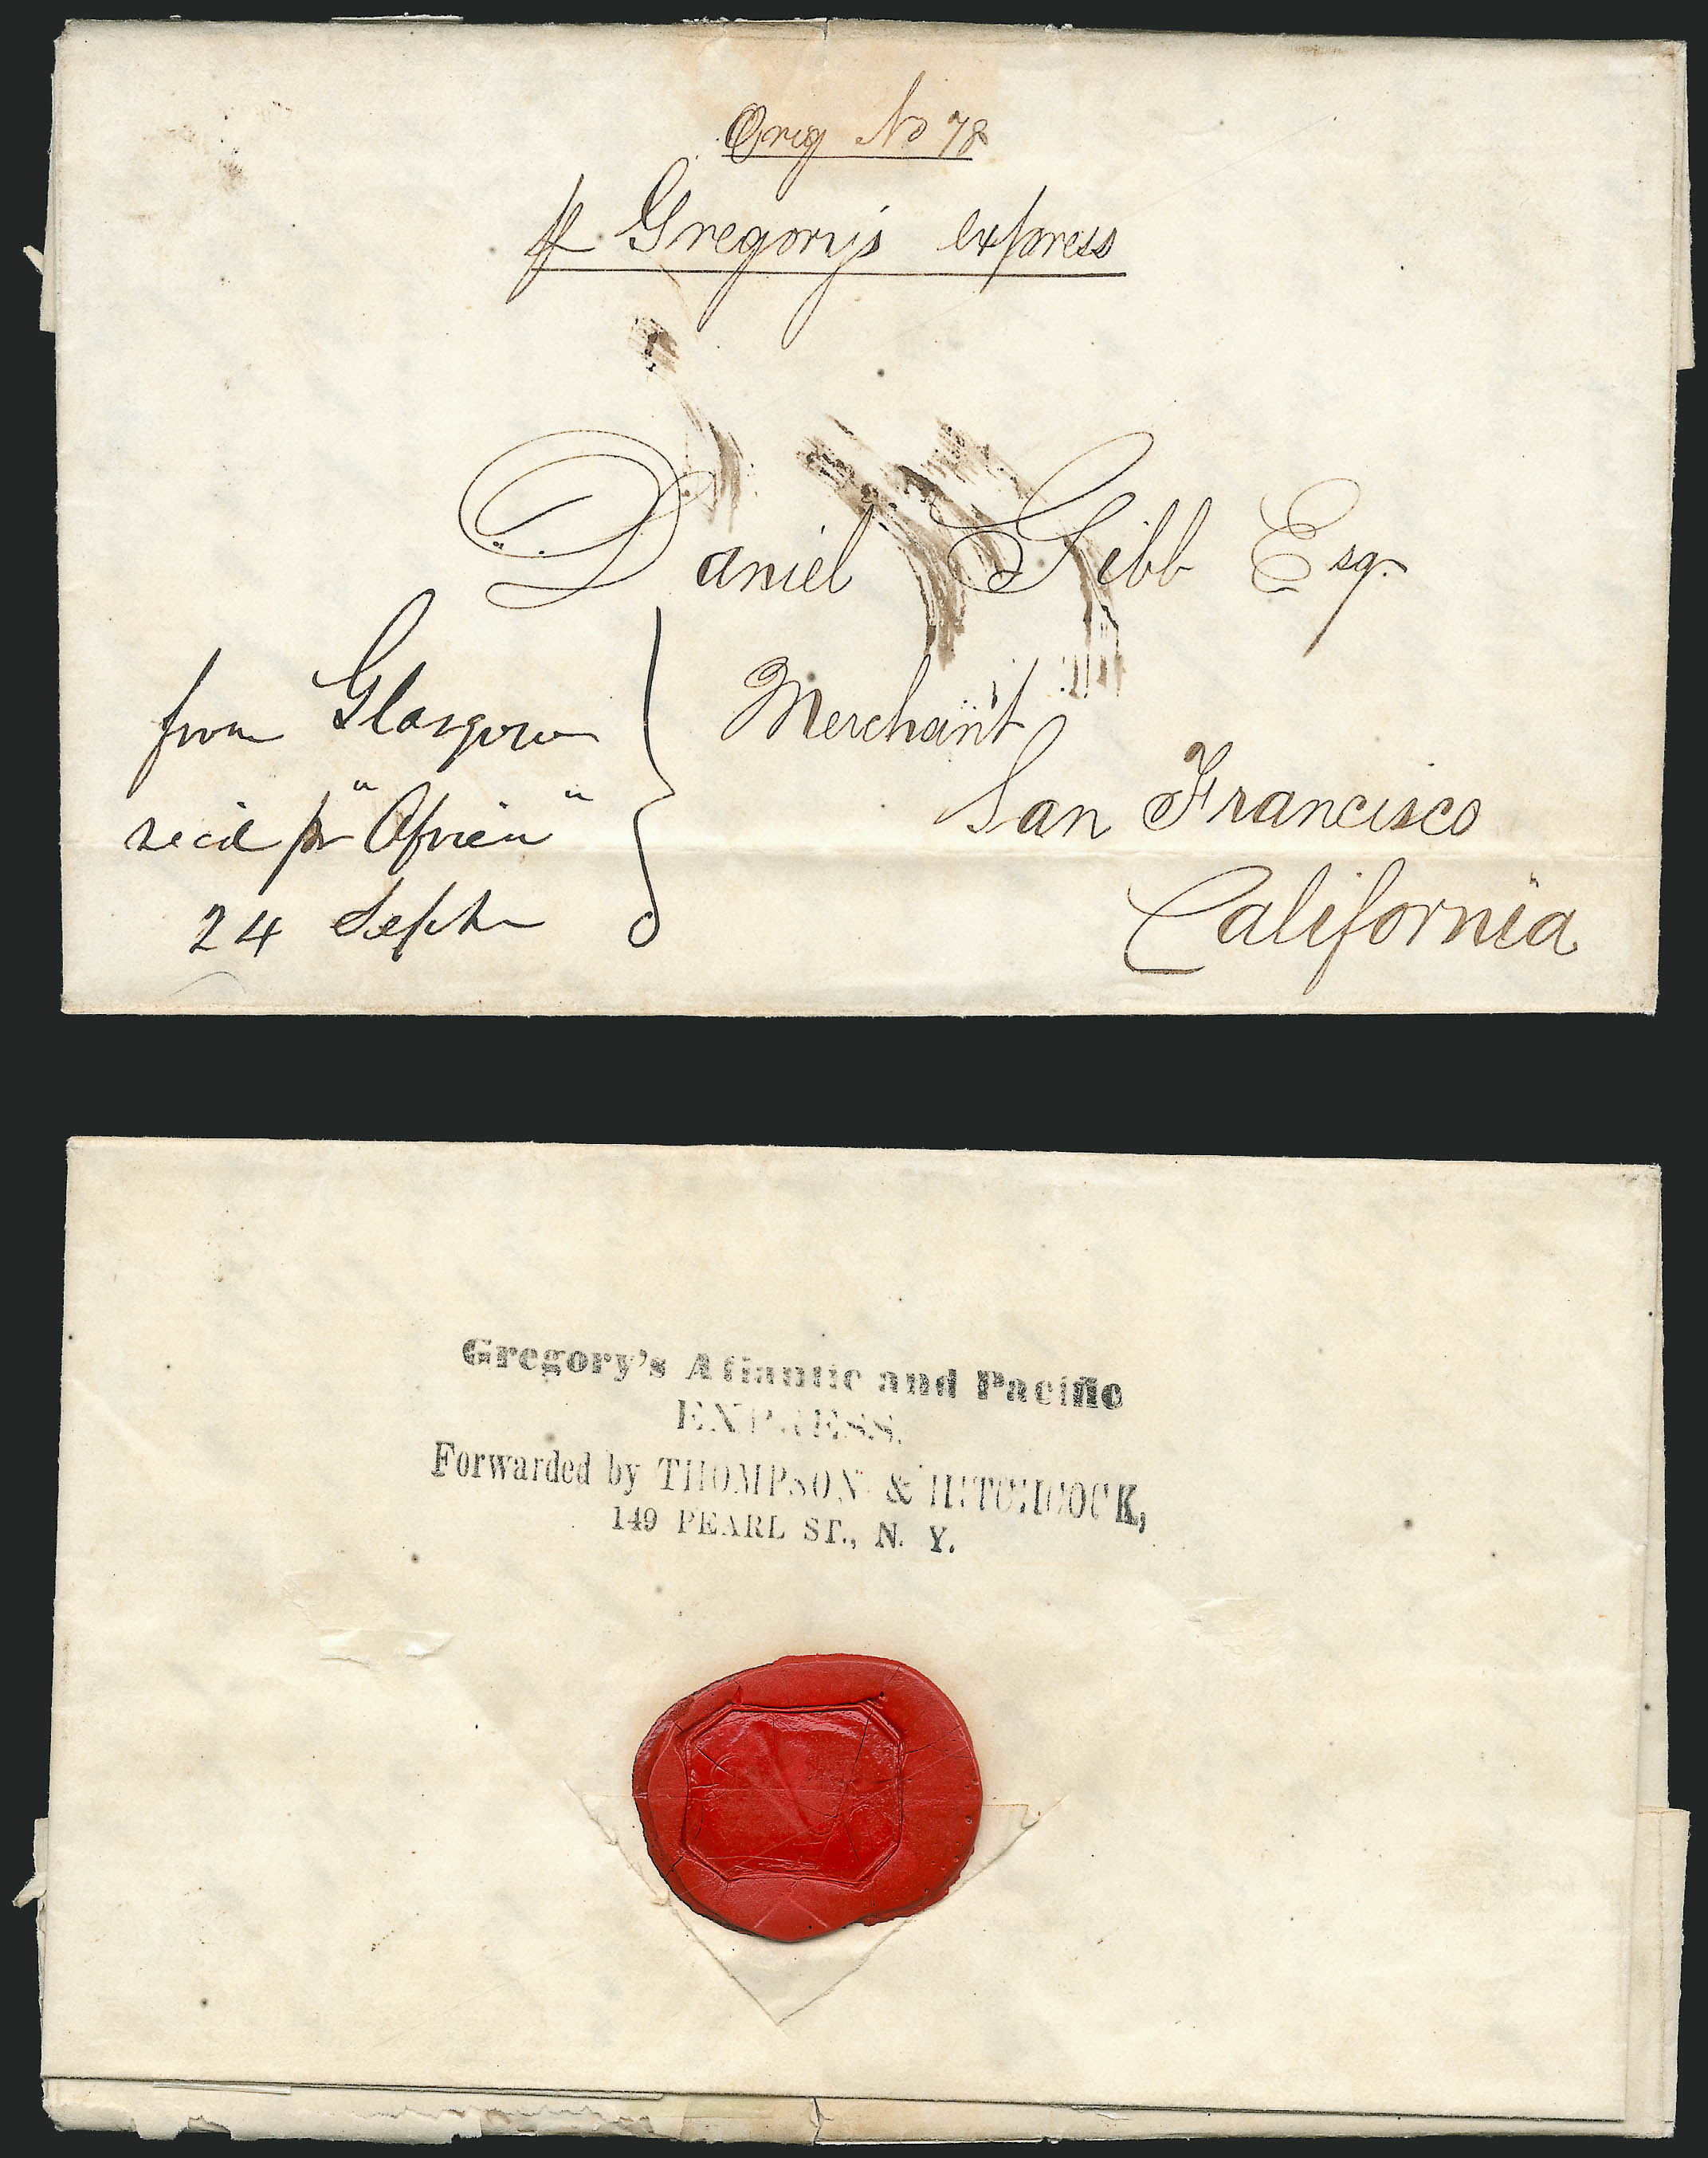 Orig No 78
pr Gregory's express
Daniel Gibb Esqr
Merchant
San Francisco
California
from Glasgow
recd pr "Africa"
24 Septr
Gregory's Atlantic and Pacific
EXPRESS.
Forwarded by THOMPSON & HITCHCOCK,
149 PEARL ST., N. Y.